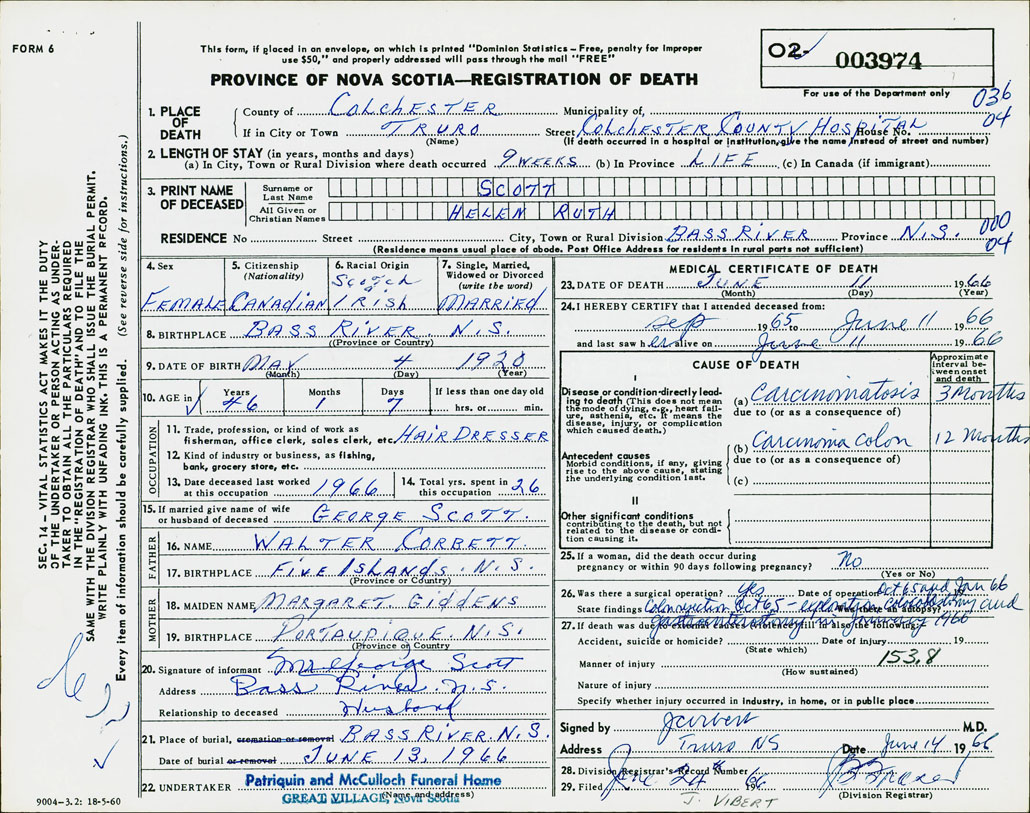 FORM 6
This form, if placed in an envelope, on which is printed "Dominion Statistics – Free, penalty for improper
use $50," and properly addressed will pass through the mail "FREE"
PROVINCE OF NOVA SCOTIA—REGISTRATION OF DEATH
02- 003974
For use of the Department only
036
04
SEC. 14. VITAL STATISTICS ACT MAKES IT THE DUTY
OF THE UNDERTAKER OR PERSON ACTING AS UNDER-
TAKER TO OBTAIN ALL THE PARTICULARS REQUIRED
IN THE "REGISTRATION OF DEATH" AND TO FILE THE
SAME WITH THE DIVISION REGISTRAR WHO SHALL ISSUE THE BURIAL PERMIT.
WRITE PLAINLY WITH UNFADING INK. THIS IS A PERMANENT RECORD.
Every item of information should be carefully supplied. (See reverse side for instructions.)
1. PLACE OF DEATH County of COLCHESTER Municipality of
If in City or Town TRURO Street COLCHESTER COUNTY HOSPITAL House No.
(Name) (If death occurred in a hospital or institution, give the name instead of street and number)
2. LENGTH OF STAY (in years, months and days)
(a) In City, Town or Rural Division where death occurred 9 WEEKS (b) In Province LIFE (c) In Canada (if immigrant)
3. PRINT NAME OF DECEASED Surname or Last Name SCOTT
All Given or Christian Names HELEN RUTH
000
04
RESIDENCE No Street City, Town or Rural Division BASS RIVER Province N.S.
(Residence means usual place of abode. Post Office Address for residents in rural parts not sufficient)
4. Sex FEMALE
5. Citizenship (Nationality) CANADIAN
6. Racial Origin SCOTCH IRISH
7. Single, Married, Widowed or Divorced (write the word) MARRIED
8. BIRTHPLACE BASS RIVER N.S.
(Province or Country)
9. DATE OF BIRTH MAY 4 1920
(Month) (Day) (Year)
10. AGE in Years 46 Months 1 Days 7 If less than one day old hrs. or min.
OCCUPATION
11. Trade, profession, or kind of work as fisherman, office clerk, sales clerk, etc. HAIR DRESSER
12. Kind of industry or business, as fishing, bank, grocery store, etc.
13. Date deceased last worked at this occupation 1966
14. Total yrs. spent in this occupation 26
15. If married give name of wife or husband of deceased GEORGE SCOTT.
FATHER
16. NAME WALTER CORBETT.
17. BIRTHPLACE FIVE ISLANDS. N.S.
(Province or Country)
MOTHER
18. MAIDEN NAME MARGARET. GIDDENS
19. BIRTHPLACE PORTAUPIQUE. N.S.
(Province or Country)
20. Signature of informant Mr George Scott
Address Bass River. N.S.
Relationship to deceased Husband
21. Place of burial, cremation or removal BASS RIVER. N.S.
Date of burial or removal JUNE 13, 1966
22. UNDERTAKER Patriquin and McCulloch Funeral Home
GREAT VILLAGE, Nova Scotia
(Name and address)
9004–3.2: 18-5-60
MEDICAL CERTIFICATE OF DEATH
23. DATE OF DEATH JUNE 11 1966
(Month) (Day) (Year)
24. I HEREBY CERTIFY that I attended deceased from:
Sep 1965 to June 11 1966
and last saw her alive on June 11 1966
CAUSE OF DEATH
Approximate interval between onset and death
I
Disease or condition directly leading to death (This does not mean the mode of dying, e.g., heart failure, asthenia, etc. It means the disease, injury, or complication which caused death.)
(a) Carcinomatosis 3 Months
due to (or as a consequence of)
(b) Carcinoma colon 12 Months
due to (or as a consequence of)
(c)
Antecedent causes
Morbid conditions, if any, giving rise to the above cause, stating the underlying condition last.
II
Other significant conditions
contributing to the death, but not related to the disease or condition causing it.
25. If a woman, did the death occur during pregnancy or within 90 days following pregnancy? No
(Yes or No)
26. Was there a surgical operation? Yes Date of operation Oct 65 and Jan 66 19
State findings Colon resection Oct 65 – Was there an autopsy? and
in January 1966
27. If death was due to external causes (violence) fill in also the following:
Accident, suicide or homicide? Date of injury 19
(State which)
Manner of injury 153.8
(How sustained)
Nature of injury
Specify whether injury occurred in industry, in home, or in public place
Signed by J Vibert M.D.
Address Truro NS Date June 14 1966
28. Division Registrar's Record Number
29. Filed June 24 1966
(Division Registrar)
J. VIBERT